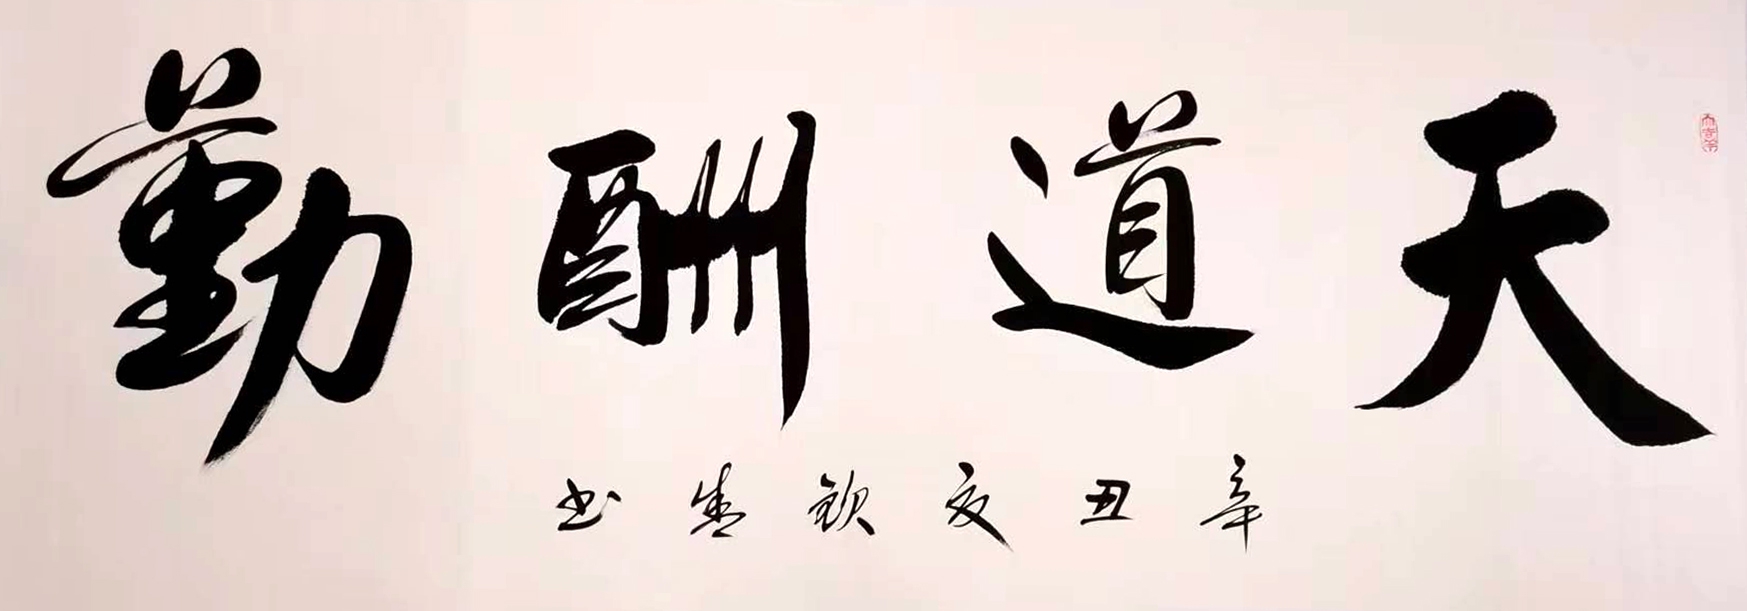 天道酬勤
辛丑夏钦书